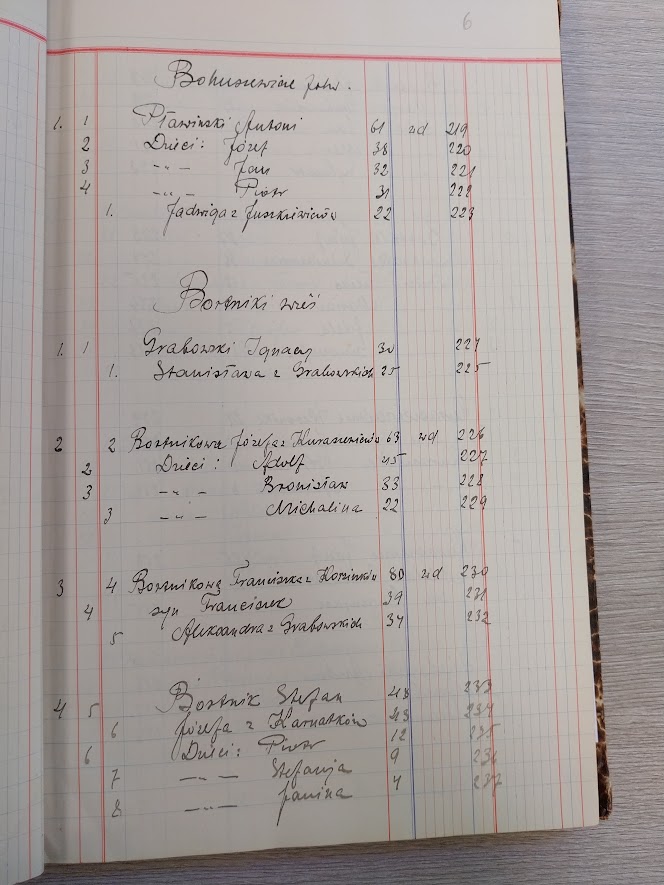 6
Bohuszewicze folw.
1. 1 Pławinski Antoni 61 wd 219
2 Dzieci: Józef 38 220
3 -"- Jan 32 221
4 -"- Piotr 31 222
1. Jadwiga z Juszkiewiczów 22 223
Bortniki wieś
1. 1 Grabowski Ignacy 30 224
1. Stanisława z Grabowskich 25 225
2 2 Bortnikowa Józefa z 63 wd 226
2 Dzieci: Adolf 45 227
3 -"- Bronisław 33 228
3 -"- Michalina 22 229
3 4 Bortnikowa Franciszka z 80 wd 230
4 syn Franciszek 39 231
5 Aleksandra z Grabowskich 34 232
4 5 Bortnik Stefan 48 233
6 Józefa z Karnatków 43 234
6 Dzieci: Piotr 12 235
7 -"- Stefanja 9 236
8 -"- Janina 4 237